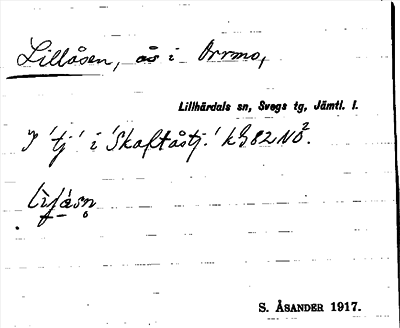 Lillåsen, ås i Orrmo,
Lillhärdals sn, Svegs tg, Jämtl. l.
I 'tj' i 'Skaftåstj.' kg 82 NO².
S. ÅSANDER 1917.